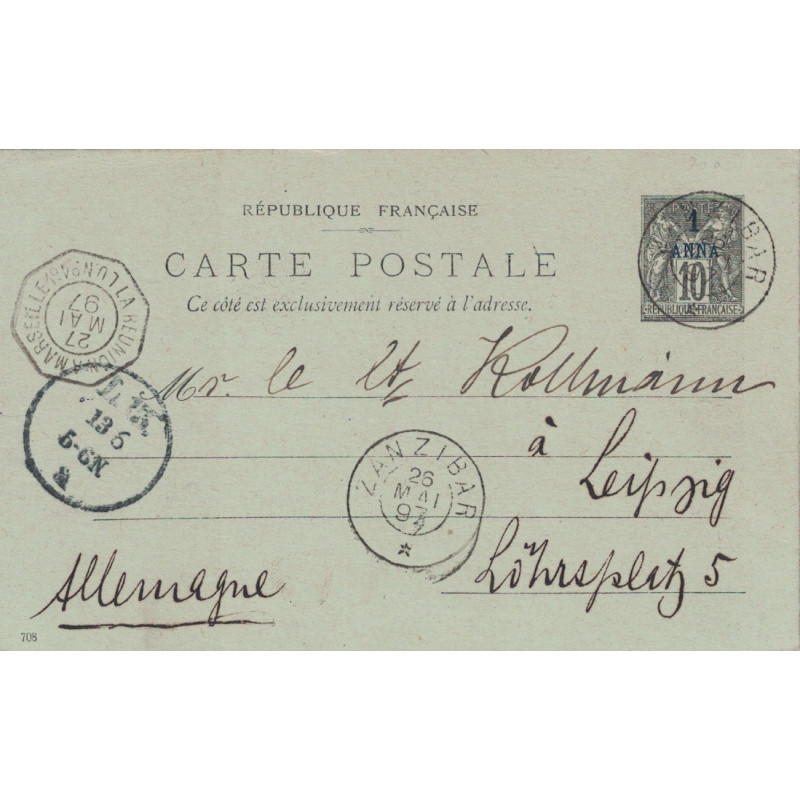 RÉPUBLIQUE FRANÇAISE
CARTE POSTALE
Ce côté est exclusivement réservé à l'adresse.
POSTE
1
ANNA
10
RÉPUBLIQUE FRANÇAISE
ZIBAR
LA RÉUNION A MARSEILLE
27
MAI
97
13 6
5-6N
Mr. le Lt. Kollmann
à
Leipzig
ZANZIBAR
26
MAI
97
Löhrsplatz 5
Allemagne
708